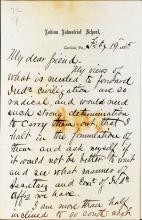 Indian Industrial School,
Carlisle, Pa., Feby 19 188
My dear friend.
My views of
what is needed to forward
Ind. civilization are so
radical, and would need
such strong determination
to carry them out, that I
halt in the formulation of
them and ask myself if
it would not be better to wait
and see what manner of
Secretary and Com. of Ind.
Affrs we have.
I am more than half
inclined to go south next